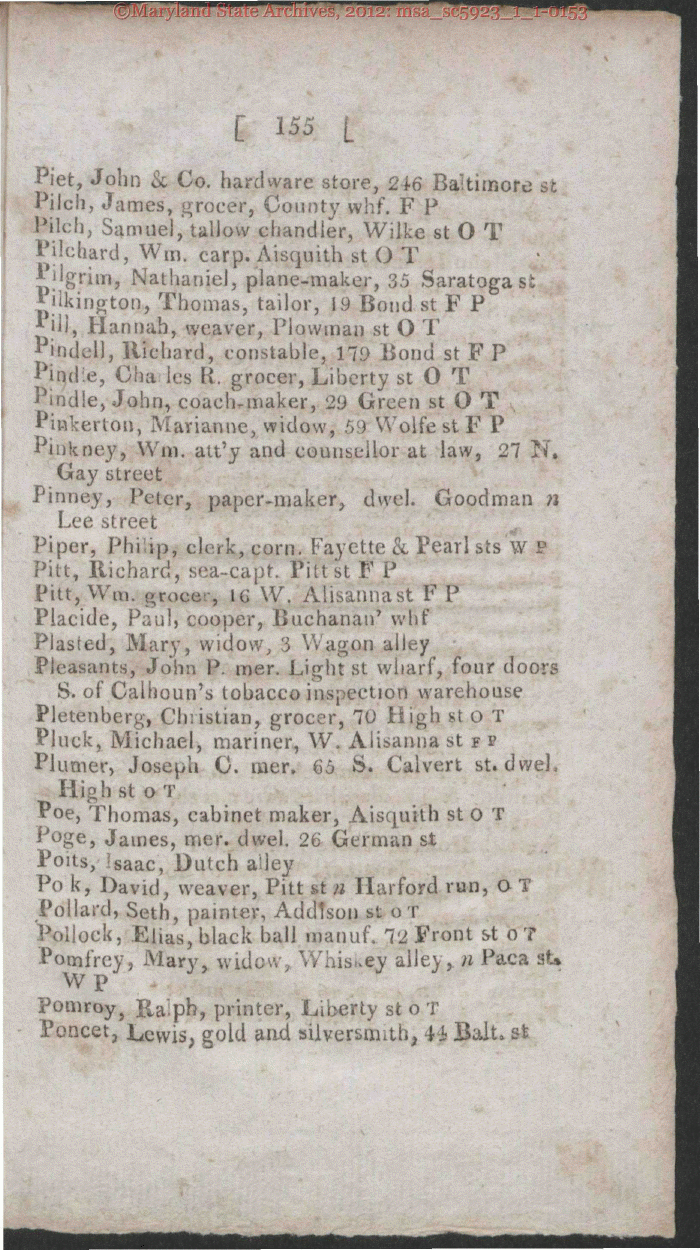 ©Maryland State Archives, 2012: msa_sc5923_1_1-0153
[ 155 [
Piet, John & Co. hardware store, 246 Baltimore st
Pilch, James, grocer, County whf. F P
Pilch, Samuel, tallow chandler, Wilke st O T
Pilchard, Wm. carp. Aisquith st O T
Pilgrim, Nathaniel, plane-maker, 35 Saratoga st
Pilkington, Thomas, tailor, 19 Bond st F P
Pill, Hannah, weaver, Plowman st O T
Pindell, Richard, constable, 179 Bond st F P
Pindle, Charles R. grocer, Liberty st O T
Pindle, John, coach-maker, 29 Green st O T
Pinkerton, Marianne, widow, 59 Wolfe st F P
Pinkney, Wm. att'y and counsellor at law, 27 N.
Gay street
Pinney, Peter, paper-maker, dwel. Goodman n
Lee street
Piper, Philip, clerk, corn. Fayette & Pearl sts W P
Pitt, Richard, sea-capt. Pitt st F P
Pitt, Wm. grocer, 16 W. Alisanna st F P
Placide, Paul, cooper, Buchanan' whf
Plasted, Mary, widow, 3 Wagon alley
Pleasants, John P. mer. Light st wharf, four doors
S. of Calhoun's tobacco inspection warehouse
Pletenberg, Christian, grocer, 70 High st O T
Pluck, Michael, mariner, W. Alisanna st F P
Plumer, Joseph C. mer. 65 S. Calvert st. dwel.
High st O T
Poe, Thomas, cabinet maker, Aisquith st O T
Poge, James, mer. dwel. 26 German st
Poits, Isaac, Dutch alley
Po k, David, weaver, Pitt st n Harford run, O T
Pollard, Seth, painter, Addison st O T
Pollock, Elias, black ball manuf. 72 Front st O T
Pomfrey, Mary, widow, Whiskey alley, n Paca st.
W P
Pomroy, Ralph, printer, Liberty st O T
Poncet, Lewis, gold and silversmith, 44 Balt. st